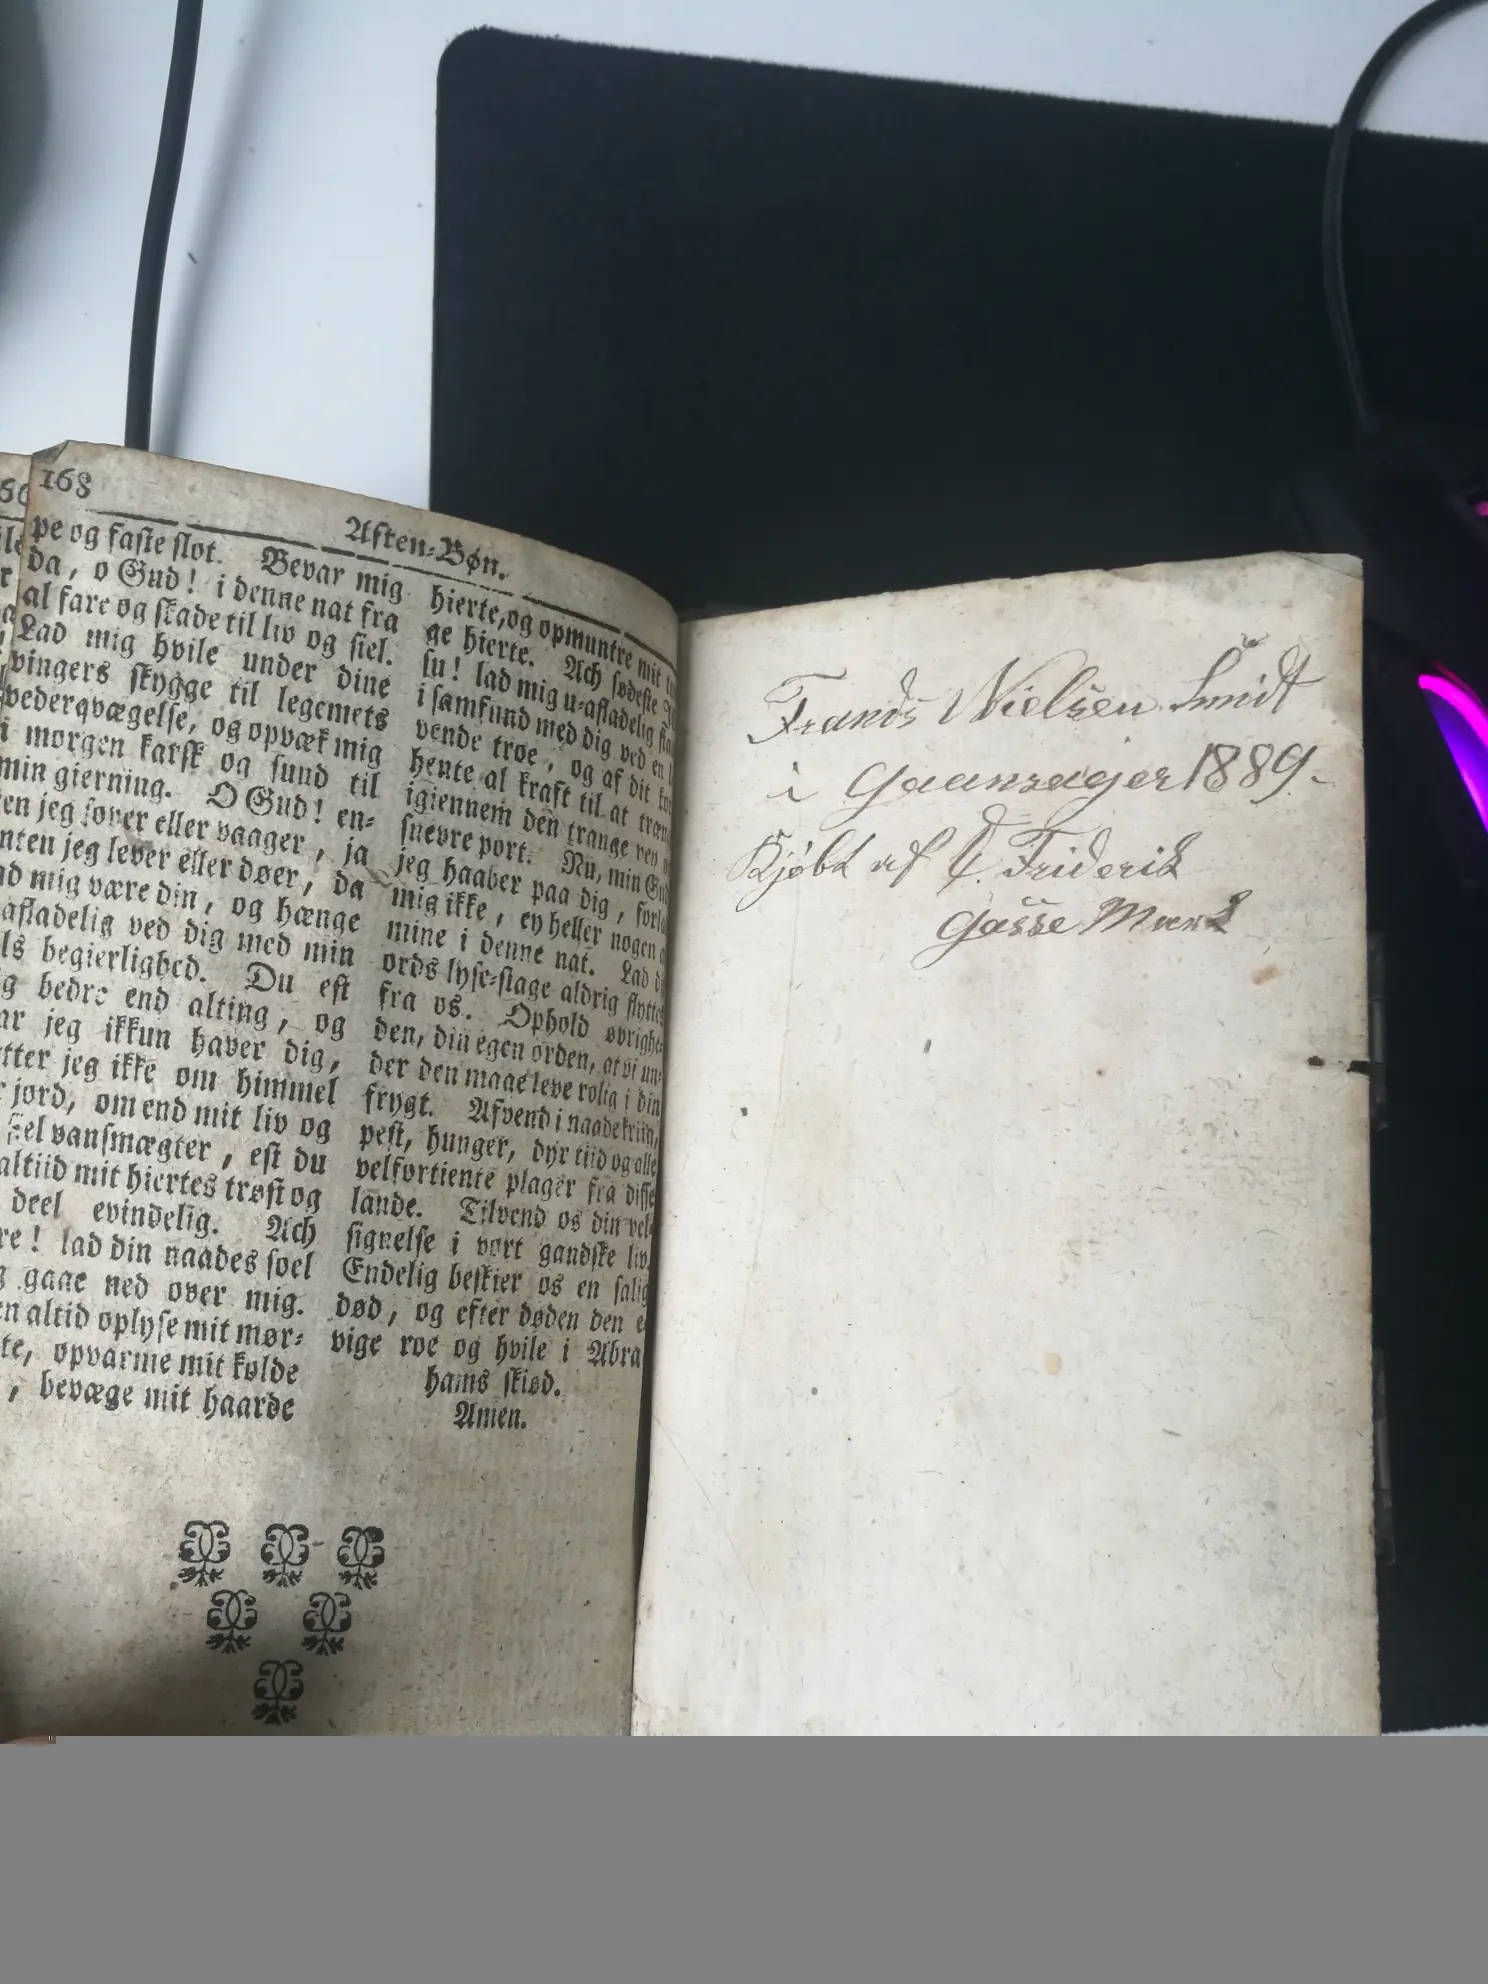 168
Aften=Bøn.
pe og faste slot. Bevar mig
da, o Gud! i denne nat fra
al fare og skade til liv og siel.
Lad mig hvile under dine
vingers skygge til legemets
vederqvægelse, og opvæk mig
i morgen karsk og sund til
min gierning. O Gud! en=
ten jeg sover eller vaager, ja
nten jeg lever eller døer, da
ad mig være din, og hænge
afladelig ved dig med min
ls begierlighed. Du est
g bedre end alting, og
ar jeg ikkun haver dig,
tter jeg ikke om himmel
r jord, om end mit liv og
siel vansmægter, est du
altiid mit hiertes trøst og
deel evindelig. Ach
re! lad din naades soel
g gaae ned over mig.
n altid oplyse mit mør=
te, opvarme mit kolde
, bevæge mit haarde
hierte, og opmuntre mit
ge hierte. Ach sødeste
su! lad mig u=afladelig
i samfund med dig ved en
vende troe, og af dit
hente al kraft til at
igiennem den trange vey
snevre port. Nu, min Gud
jeg haaber paa dig,
mig ikke, ey heller nogen
mine i denne nat. Lad
ords lyse=stage aldrig flyttes
fra os. Ophold øvrighe=
den, din egen orden, at vi un=
der den maae leve rolig i din
frygt. Afvend i naade
pest, hunger, dyr tiid og alle
velfortiente plager fra disse
lande. Tilvend os din vel=
signelse i vort gandske liv.
Endelig beskier os en salig
død, og efter døden den e
vige roe og hvile i Abra
hams skiød.
Amen.
Frands Nielsen Smidt
i Gaansager 1889
Kjøbt af C. Friderik
Gasse Mark